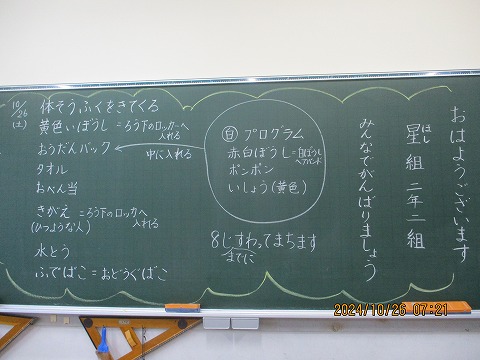 おはようございます
ほし
星組 二年二組
みんなでがんばりましょう
10/26
(土)
体そうふくをきてくる
黄色いぼうし=ろう下のロッカーへ
入れる
おうだんバック
中に入れる
タオル
おべん当
きがえ=ろう下のロッカへ
(ひつような人)
入れる
水とう
ふでばこ=おどうぐばこ
プログラム
赤白ぼうし=白ぼうし
ヘアバンド
ポンポン
いしょう(黄色)
8じすわってまちます
までに
2024/10/26 07:21